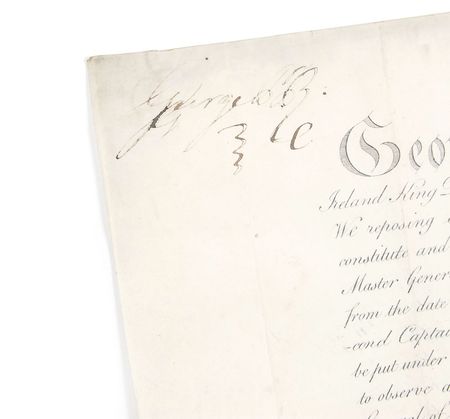 George P R
C
Geo
Ireland King
We reposing
constitute and
Master Gener
from the date
-cond Captai
be put under
to observe a